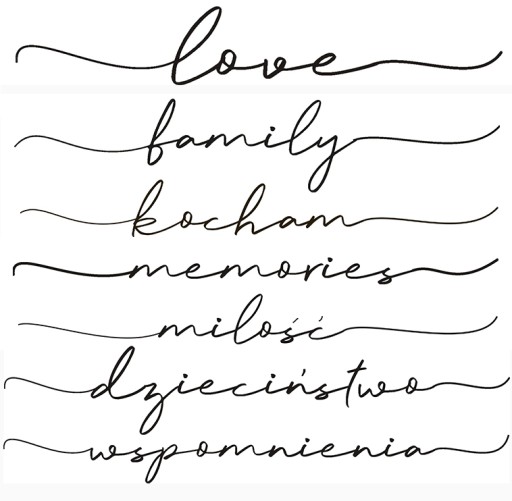 love
family
kocham
memories
milość
dzieciństwo
wspomnienia